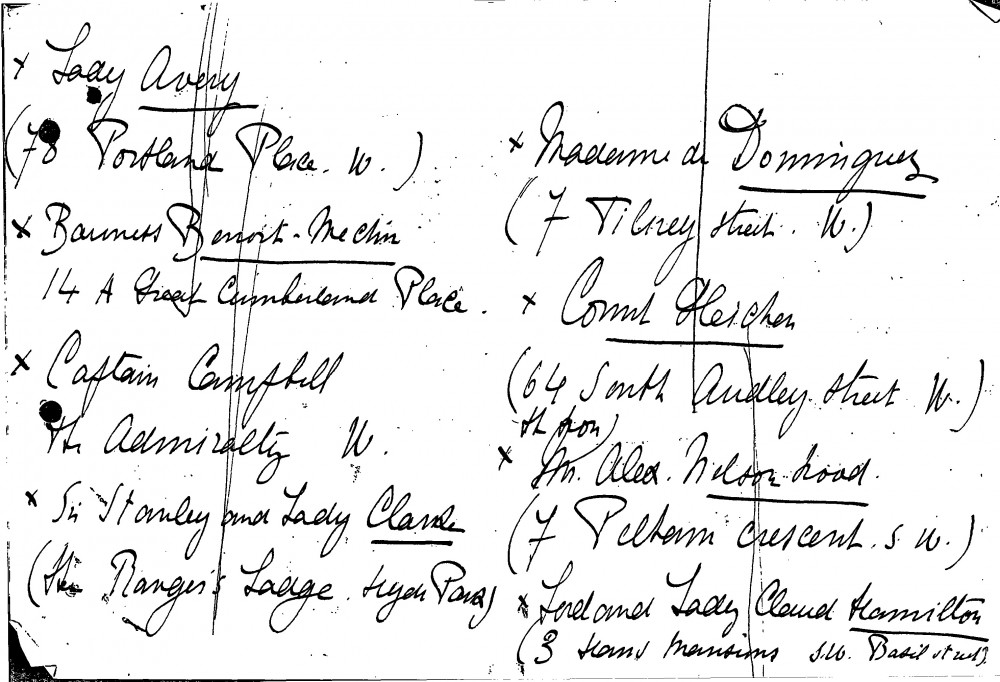 x Lady Avery
(78 Portland Place. W.)
x Baroness Benoist-Mechin
14 A Great Cumberland Place.
x Captain Campbell
The Admiralty W.
x Sir Stanley and Lady Clarke
(The Ranger's Lodge. Hyde Park)
x Madame de Dominguez
(7 Tilney Street. W.)
x Count Gleichen
(64 South Audley Street W.)
x Alex. Nelson Hood.
(7 Pelham Crescent. S. W.)
x Lord and Lady Claud Hamilton
(3 Hans Mansions S.W. Basil Street)